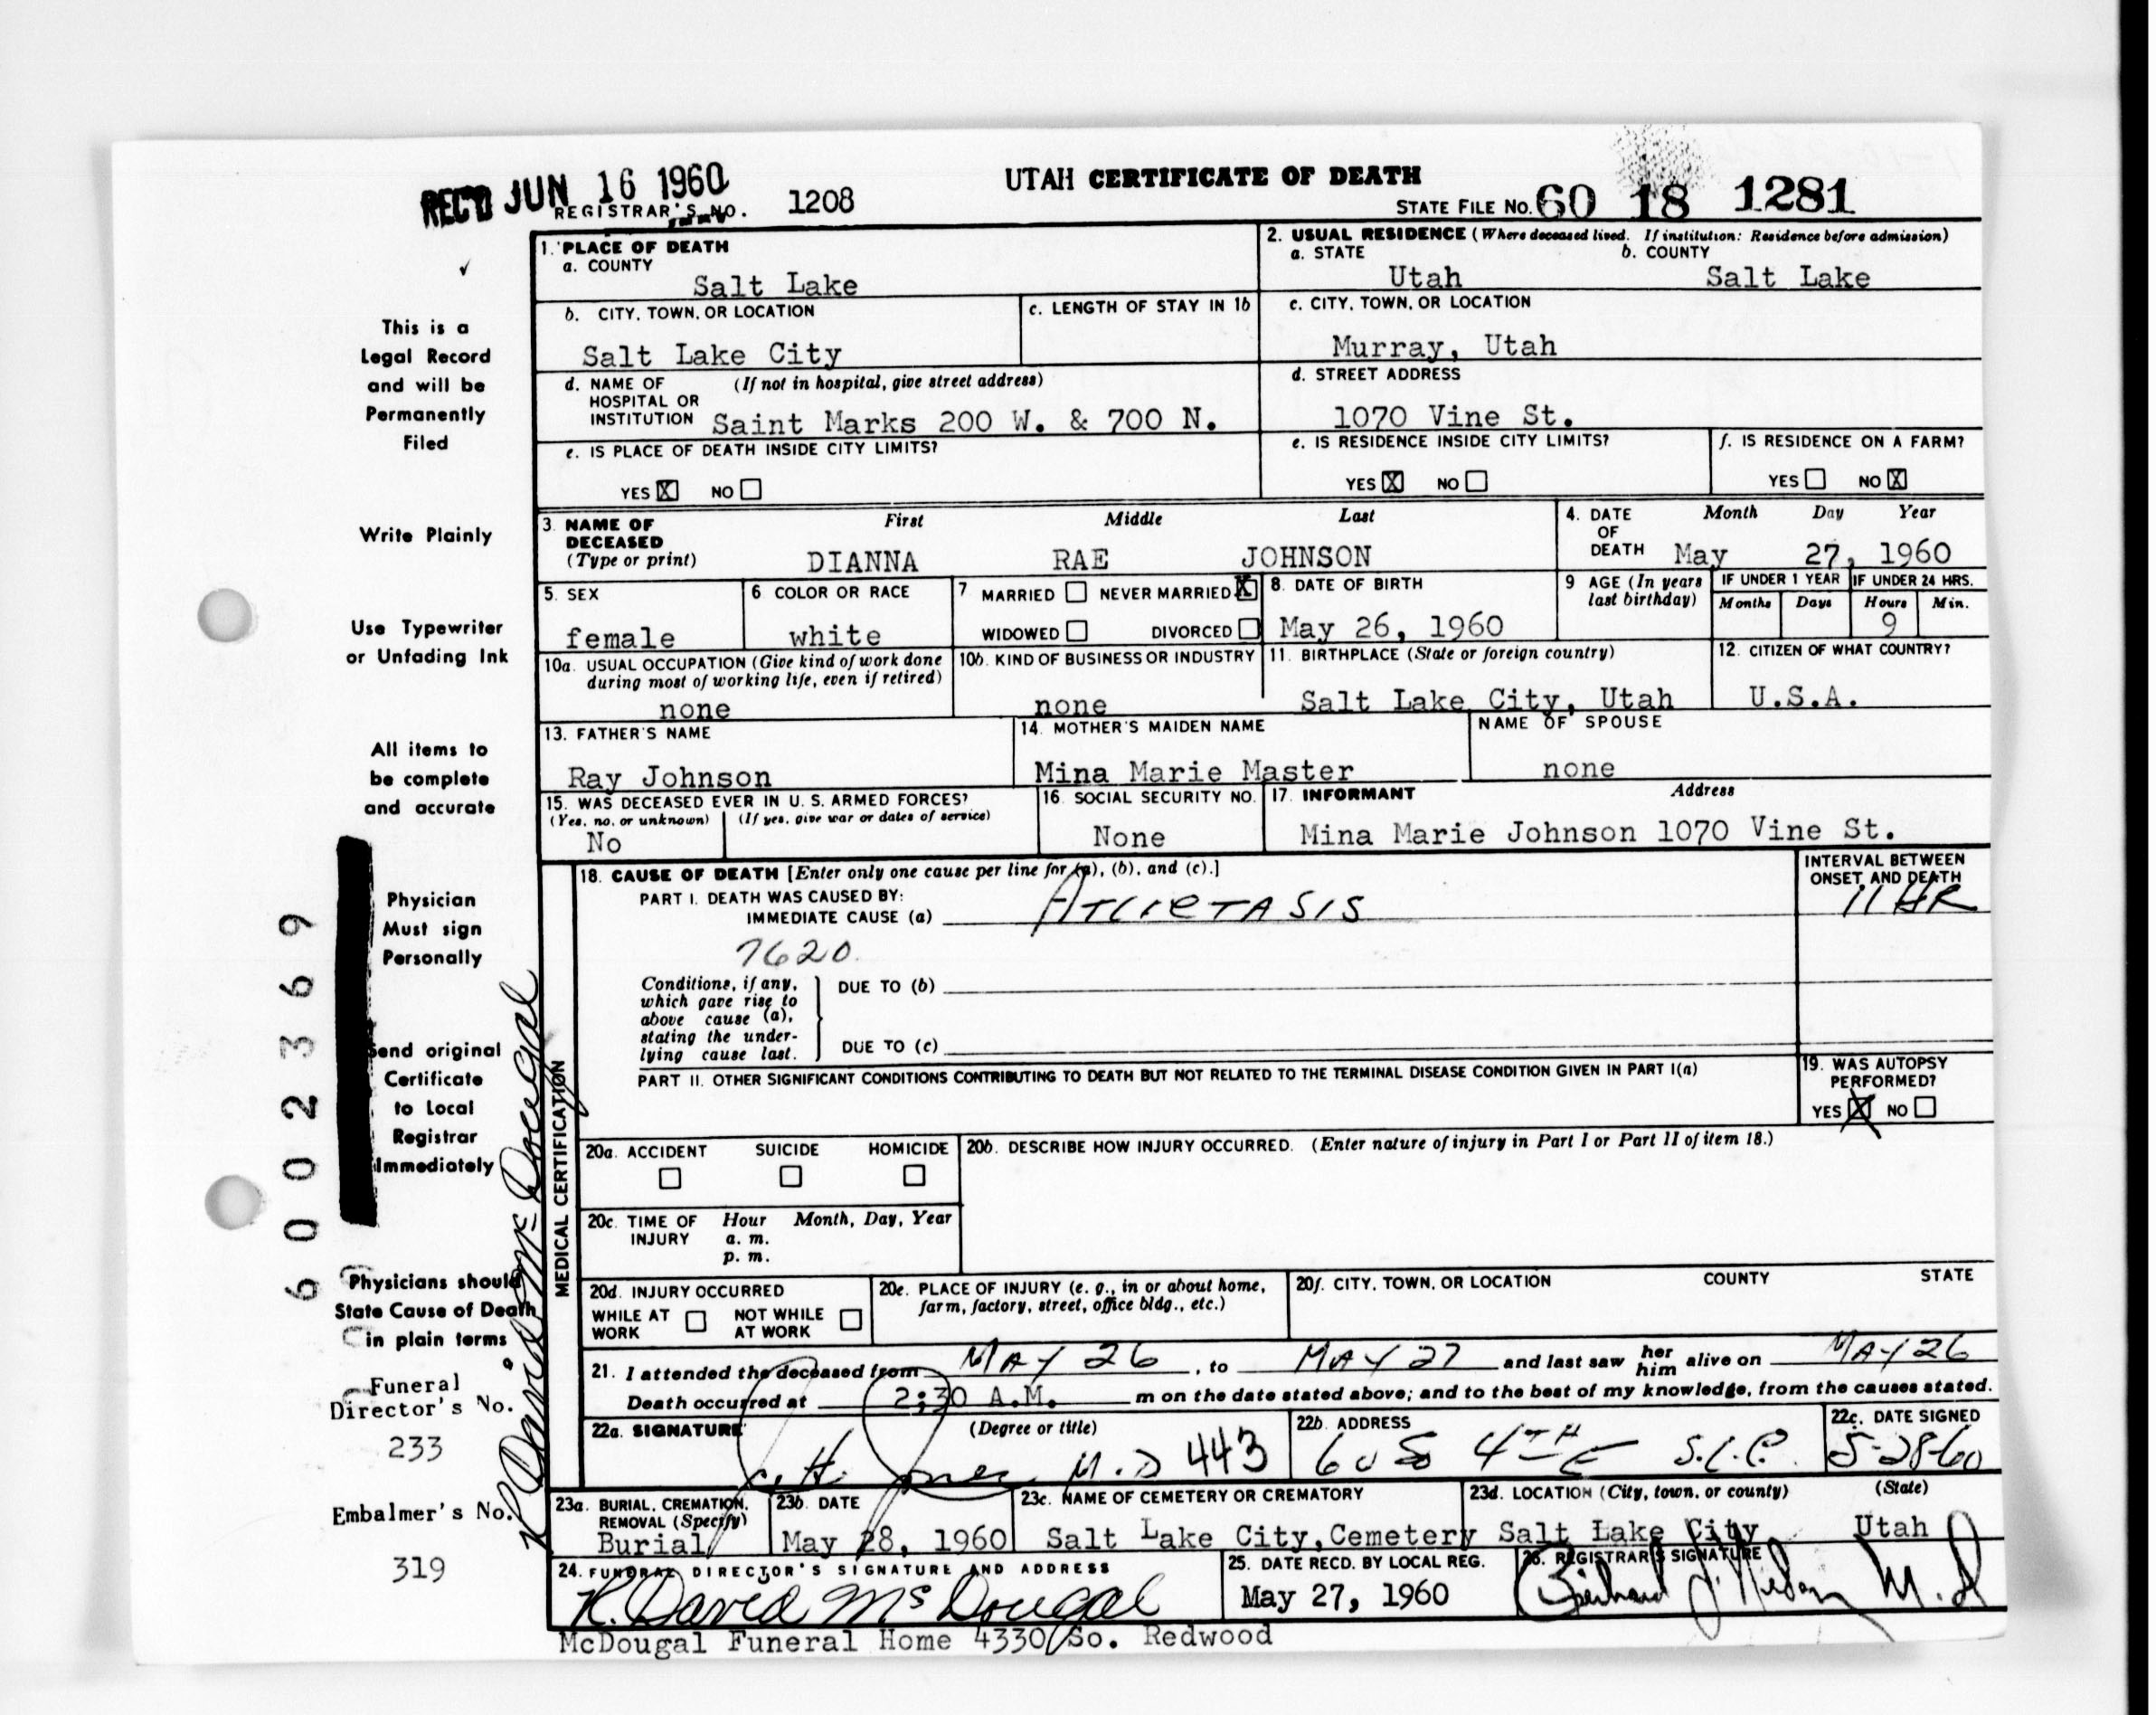 REC'D JUN 16 1960
UTAH CERTIFICATE OF DEATH
REGISTRAR'S NO. 1208
STATE FILE NO. 60 18 1281
1. PLACE OF DEATH
a. COUNTY
Salt Lake
2. USUAL RESIDENCE (Where deceased lived. If institution: Residence before admission)
a. STATE b. COUNTY
Utah Salt Lake
b. CITY, TOWN, OR LOCATION
Salt Lake City
c. LENGTH OF STAY IN 1b
c. CITY, TOWN, OR LOCATION
Murray, Utah
d. NAME OF (If not in hospital, give street address)
HOSPITAL OR
INSTITUTION Saint Marks 200 W. & 700 N.
d. STREET ADDRESS
1070 Vine St.
e. IS PLACE OF DEATH INSIDE CITY LIMITS?
YES X NO
e. IS RESIDENCE INSIDE CITY LIMITS?
YES X NO
f. IS RESIDENCE ON A FARM?
YES NO X
3. NAME OF DECEASED (Type or print)
First Middle Last
DIANNA RAE JOHNSON
4. DATE OF DEATH
Month Day Year
May 27, 1960
5. SEX
female
6 COLOR OR RACE
white
7 MARRIED NEVER MARRIED X
WIDOWED DIVORCED
8. DATE OF BIRTH
May 26, 1960
9 AGE (In years last birthday)
IF UNDER 1 YEAR
Months Days
IF UNDER 24 HRS.
Hours Min.
9
10a. USUAL OCCUPATION (Give kind of work done
during most of working life, even if retired)
none
10b. KIND OF BUSINESS OR INDUSTRY
none
11. BIRTHPLACE (State or foreign country)
Salt Lake City, Utah
12. CITIZEN OF WHAT COUNTRY?
U.S.A.
13. FATHER'S NAME
Ray Johnson
14. MOTHER'S MAIDEN NAME
Mina Marie Master
NAME OF SPOUSE
none
15. WAS DECEASED EVER IN U. S. ARMED FORCES?
(Yes, no, or unknown) (If yes, give war or dates of service)
No
16. SOCIAL SECURITY NO.
None
17. INFORMANT Address
Mina Marie Johnson 1070 Vine St.
18. CAUSE OF DEATH [Enter only one cause per line for (a), (b), and (c).]
PART I. DEATH WAS CAUSED BY:
IMMEDIATE CAUSE (a) Atlietasis
7620
INTERVAL BETWEEN
ONSET AND DEATH
11 HR
Conditions, if any,
which gave rise to
above cause (a),
stating the under-
lying cause last.
DUE TO (b)
DUE TO (c)
PART II. OTHER SIGNIFICANT CONDITIONS CONTRIBUTING TO DEATH BUT NOT RELATED TO THE TERMINAL DISEASE CONDITION GIVEN IN PART I(a)
19. WAS AUTOPSY
PERFORMED?
YES X NO
MEDICAL CERTIFICATION
20a. ACCIDENT SUICIDE HOMICIDE
20b. DESCRIBE HOW INJURY OCCURRED. (Enter nature of injury in Part I or Part II of item 18.)
20c. TIME OF INJURY
Hour Month, Day, Year
a. m.
p. m.
20d. INJURY OCCURRED
WHILE AT WORK NOT WHILE AT WORK
20e. PLACE OF INJURY (e. g., in or about home,
farm, factory, street, office bldg., etc.)
20f. CITY, TOWN, OR LOCATION COUNTY STATE
21. I attended the deceased from MAY 26, to MAY 27 and last saw her him alive on MAY 26
Death occurred at 2:30 A.M. m on the date stated above; and to the best of my knowledge, from the causes stated.
22a. SIGNATURE (Degree or title)
M.D 443
22b. ADDRESS
60 S 4TH E S.L.C.
22c. DATE SIGNED
5-28-60
23a. BURIAL, CREMATION,
REMOVAL (Specify)
Burial
23b. DATE
May 28, 1960
23c. NAME OF CEMETERY OR CREMATORY
Salt Lake City, Cemetery
23d. LOCATION (City, town, or county) (State)
Salt Lake City Utah
24. FUNERAL DIRECTOR'S SIGNATURE AND ADDRESS
K. David McDougal
McDougal Funeral Home 4330 So. Redwood
25. DATE RECD. BY LOCAL REG.
May 27, 1960
26. REGISTRAR'S SIGNATURE
M.D
This is a
Legal Record
and will be
Permanently
Filed
Write Plainly
Use Typewriter
or Unfading Ink
All items to
be complete
and accurate
Physician
Must sign
Personally
Send original
Certificate
to Local
Registrar
Immediately
Physicians should
State Cause of Death
in plain terms
Funeral
Director's No.
233
Embalmer's No.
319
K David McDougal
6002369